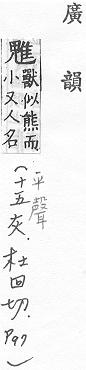 廣韻
䰦獸似熊而
小又人名
平聲
(十五灰.杜回切.P97)